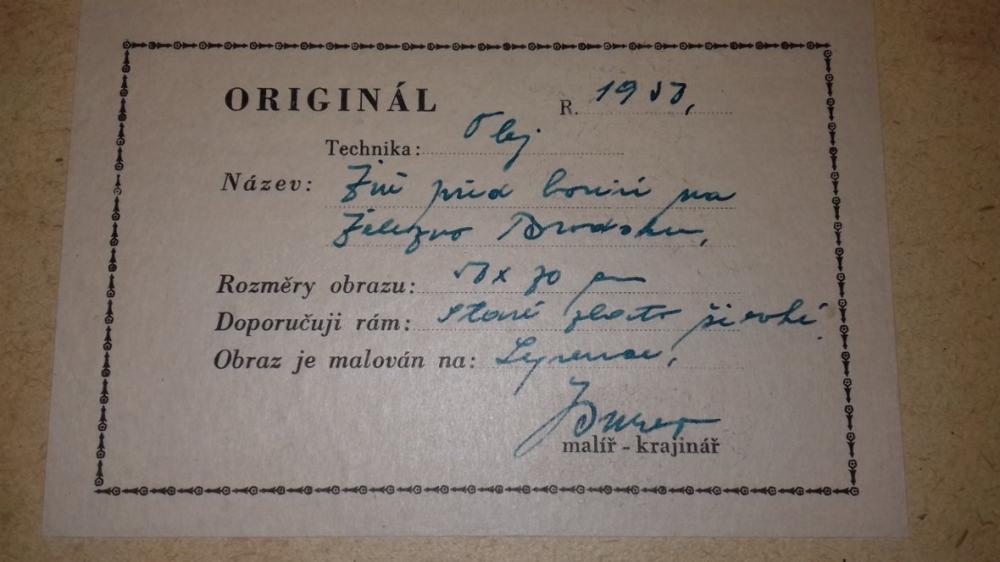 ORIGINÁL R. 1953,
Technika: Olej
Název: Žně před bouří na
Železno Brodsku,
Rozměry obrazu: 50 x 70 cm
Doporučuji rám: staré zlato široké
Obraz je malován na: Lepence,
malíř - krajinář